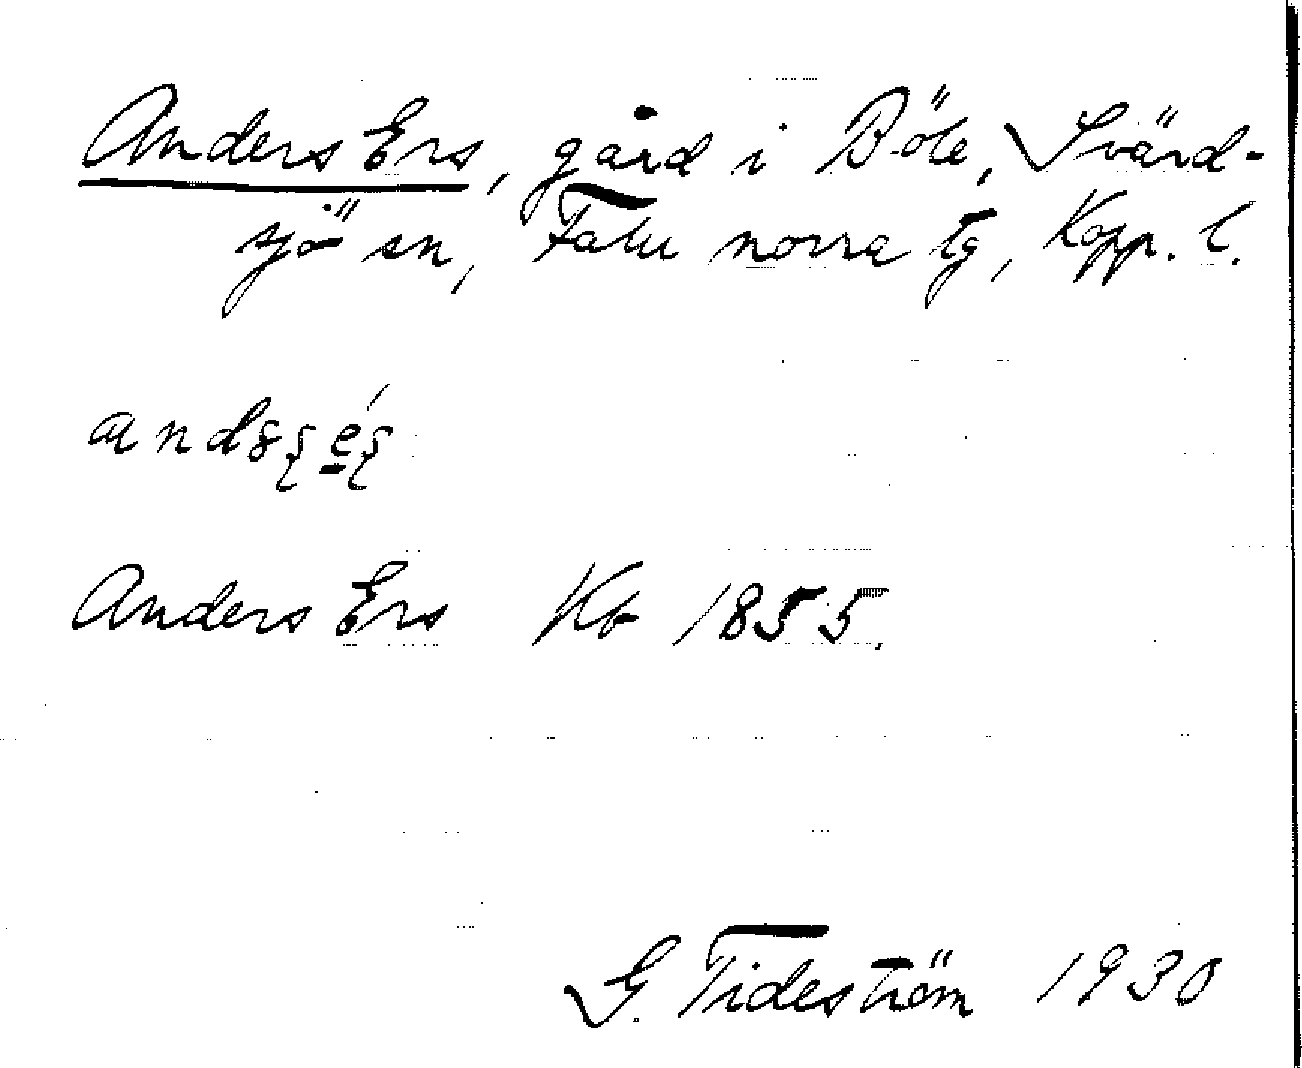 Anders Ers, gård i Böle, Svärd-
sjö sn, Falu norra tg, Kopp. l.
Anders Ers Kb 1855.
G. Tideström 1930